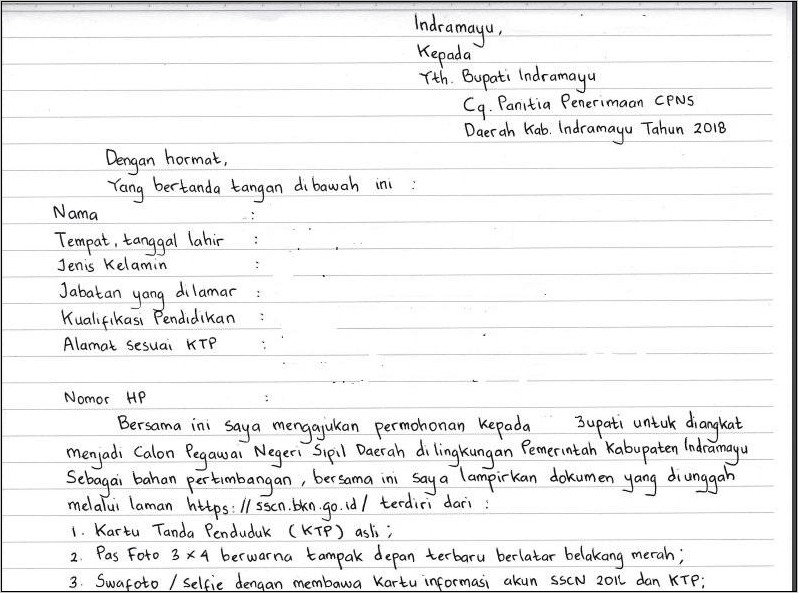 Indramayu,
Kepada
Yth. Bupati Indramayu
Cq. Panitia Penerimaan CPNS
Daerah Kab. Indramayu Tahun 2018
Dengan hormat,
Yang bertanda tangan dibawah ini :
Nama :
Tempat, tanggal lahir :
Jenis Kelamin :
Jabatan yang dilamar :
Kualifikasi Pendidikan :
Alamat sesuai KTP :
Nomor HP :
Bersama ini saya mengajukan permohonan kepada Bupati untuk diangkat
menjadi Calon Pegawai Negeri Sipil Daerah dilingkungan Pemerintah Kabupaten Indramayu
Sebagai bahan pertimbangan, bersama ini saya lampirkan dokumen yang diunggah
melalui laman https://sscn.bkn.go.id/ terdiri dari :
1. Kartu Tanda Penduduk (KTP) asli ;
2. Pas Foto 3 x 4 berwarna tampak depan terbaru berlatar belakang merah ;
3. Swafoto / selfie dengan membawa Kartu informasi akun SSCN dan KTP;